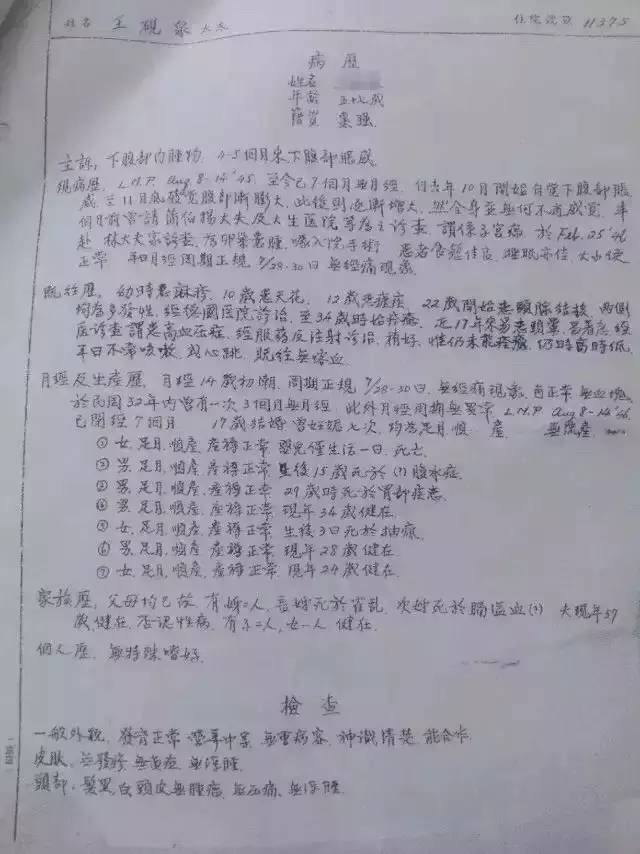 姓名 王硯泉太太 住院號頭 11375
病歷
姓名
年齡 五十七歲
籍貫 棗强
主訴, 下腹部內腫物 4-5個月來下腹部脹感
現病歷, L.M.P. Aug 8-14 '45, 至今已7個月無月經. 自去年10月開始自覺下腹部脹
感 至11月底發覺腹部漸膨大, 此後則逐漸增大, 然全身並無何不適感覺, 
個月前曾請 大夫及大生医院等爲之診查, 謂係子宮瘤 於Feb. 25 '46
赴 林大夫家診查, 爲卵巢囊腫, 入院手術 患者食慾佳良, 睡眠亦佳 大小便
正常 和月經周期正規 7/28-30日 無經痛現象.
既往歷, 幼時患麻疹, 10歲患天花, 12歲患瘧疾, 22歲開始患頸腺結核, 兩側
均爲多發性, 經德國医院診治, 至34歲時始痊癒. 近17年來易患頭暈, 曾者應經
医診查謂患高血压症, 經服藥及注射診治, 稍好, 惟仍未能痊癒, 仍時高時低,
平日不常咳嗽 及心跳, 既往無嘔血.
月經及生産歷, 月經14歲初潮, 周期正規 7/28-30日, 無經痛現象, 色正常, 無血塊,
於民国32年內曾有一次3個月無月經 此外月經周期無異常 L.M.P. Aug 8-14 '46,
已閉經7個月 17歲結婚 曾妊娠七次, 均爲足月順産, 無流産
① 女, 足月, 順産, 産褥正常 嬰兒僅生活一日, 死亡.
② 男, 足月, 順産, 産褥正常 生後15歲死於(?)腹水症.
③ 男, 足月, 順産, 産褥正常 29歲時死於胃部疾患.
④ 男, 足月, 順産, 産褥正常 現年34歲健在.
⑤ 女, 足月, 順産, 産褥正常, 生後3日死於抽瘋.
⑥ 男, 足月, 順産, 産褥正常, 現年28歲健在.
⑦ 女, 足月, 順産, 産褥正常, 現年24歲健在.
家族歷, 父母均已故 有姊二人, 長姊死於霍乱, 次姊死於腦溢血(?) 夫現年59
歲健在, 否認性病, 有子二人, 女一人 健在.
個人歷, 無特殊嗜好.
檢查
一般外觀, 發育正常 營養中等, 無重病容, 神識清楚 能合作.
皮膚, 無發疹 無黃疸, 無浮腫.
頭部, 髮黑白, 頭皮無腫瘤, 無压痛, 無浮腫.